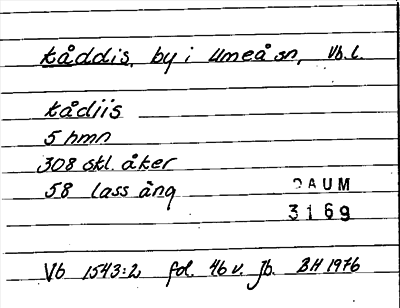 Kåddis, by i Umeå sn, Vb.l.
kådiis
5 hmn
308 skl. åker
58 lass äng
DAUM
3169
Vb 1543:2 fol. 46 v. Jb. BH 1976